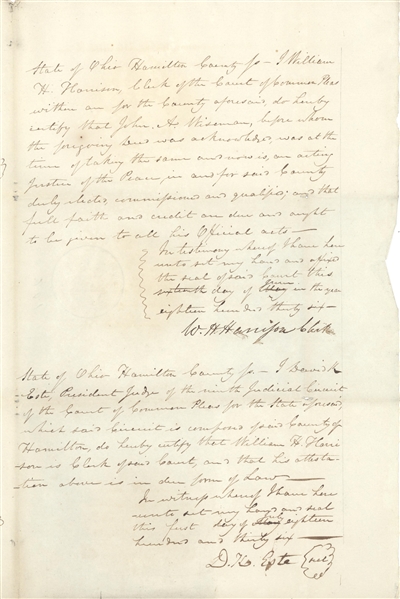 State of Ohio Hamilton County ss - I William
H. Harrison, Clerk of the Court of Common Pleas
within an for the County aforesaid, do hereby
certify that John. A. Wiseman, before whom
the forgoing Deed was acknowledged, was at the
time of taking the same and now is, an acting
Justice of the Peace, in and for said County
duly elected, commissioned and qualified; and that
full faith and credit are due and ought
to be given to all his Official acts -
In testimony whereof I have here
unto set my hand and affixed
the seal of said Court this
day of in the year
eighteen hundred thirty six -
W. H. Harrison Clerk
State of Ohio Hamilton County ss - I David K
Este, President Judge of the ninth Judicial Circuit
of the Court of Common Pleas for the State aforesaid,
which said Circuit is composed of said County of
Hamilton, do hereby certify that William H. Harri
son is Clerk of said Court, and that his attesta-
tion above is in due form of Law -
In witness whereof I have here
unto set my hand and seal
this first day of eighteen
hundred and thirty six -
D. K. Este seal